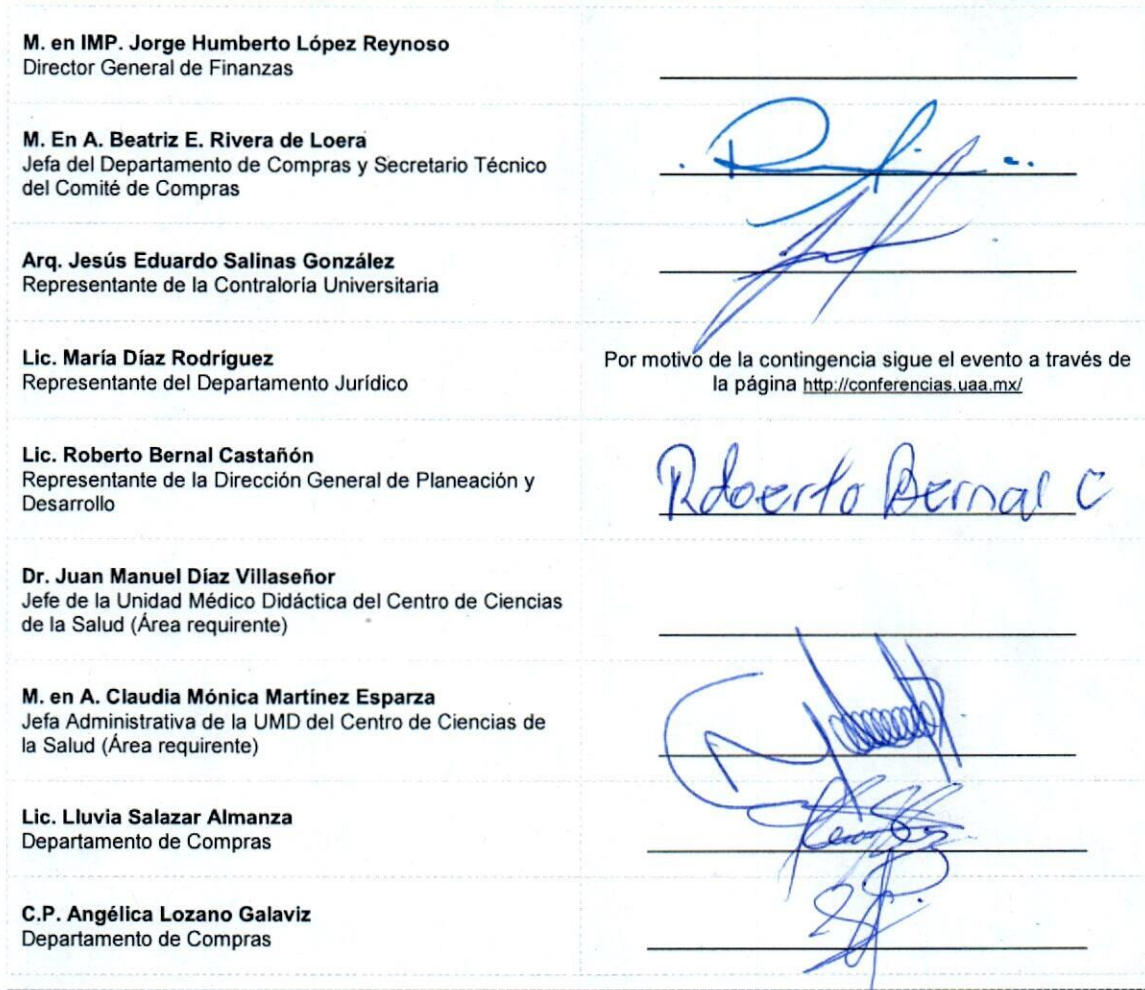 M. en IMP. Jorge Humberto López Reynoso
Director General de Finanzas
M. En A. Beatriz E. Rivera de Loera
Jefa del Departamento de Compras y Secretario Técnico
del Comité de Compras
Arq. Jesús Eduardo Salinas González
Representante de la Contraloría Universitaria
Lic. María Díaz Rodríguez
Representante del Departamento Jurídico
Por motivo de la contingencia sigue el evento a través de
la página http://conferencias.uaa.mx/
Lic. Roberto Bernal Castañón
Representante de la Dirección General de Planeación y
Desarrollo
Roberto Bernal C
Dr. Juan Manuel Díaz Villaseñor
Jefe de la Unidad Médico Didáctica del Centro de Ciencias
de la Salud (Área requirente)
M. en A. Claudia Mónica Martínez Esparza
Jefa Administrativa de la UMD del Centro de Ciencias de
la Salud (Área requirente)
Lic. Lluvia Salazar Almanza
Departamento de Compras
C.P. Angélica Lozano Galaviz
Departamento de Compras